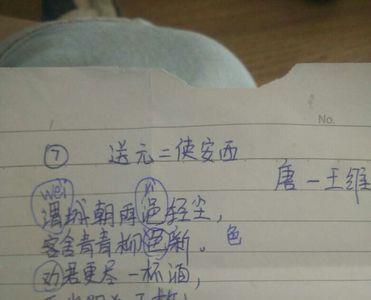 No.
⑦ 送元二使安西
唐一王维
wèi yì
渭城朝雨浥轻尘,
客舍青青柳色新。色
劝君更尽一杯酒,